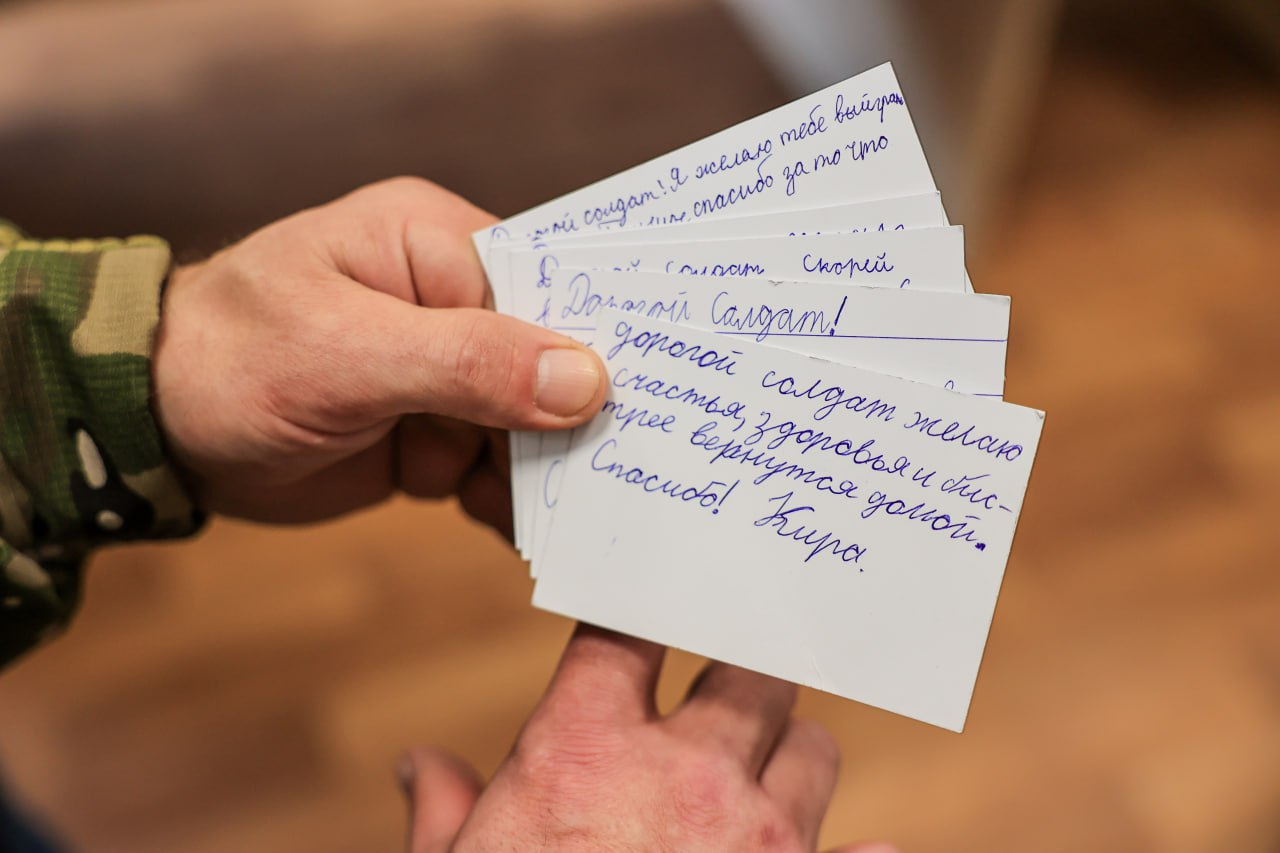 солдат! Я желаю тебе
спасибо за то что
солдат скорей
Дорогой Солдат!
дорогой солдат желаю
счастья, здоровья и быс-
трее вернутся домой.
Спасибо! Кира.